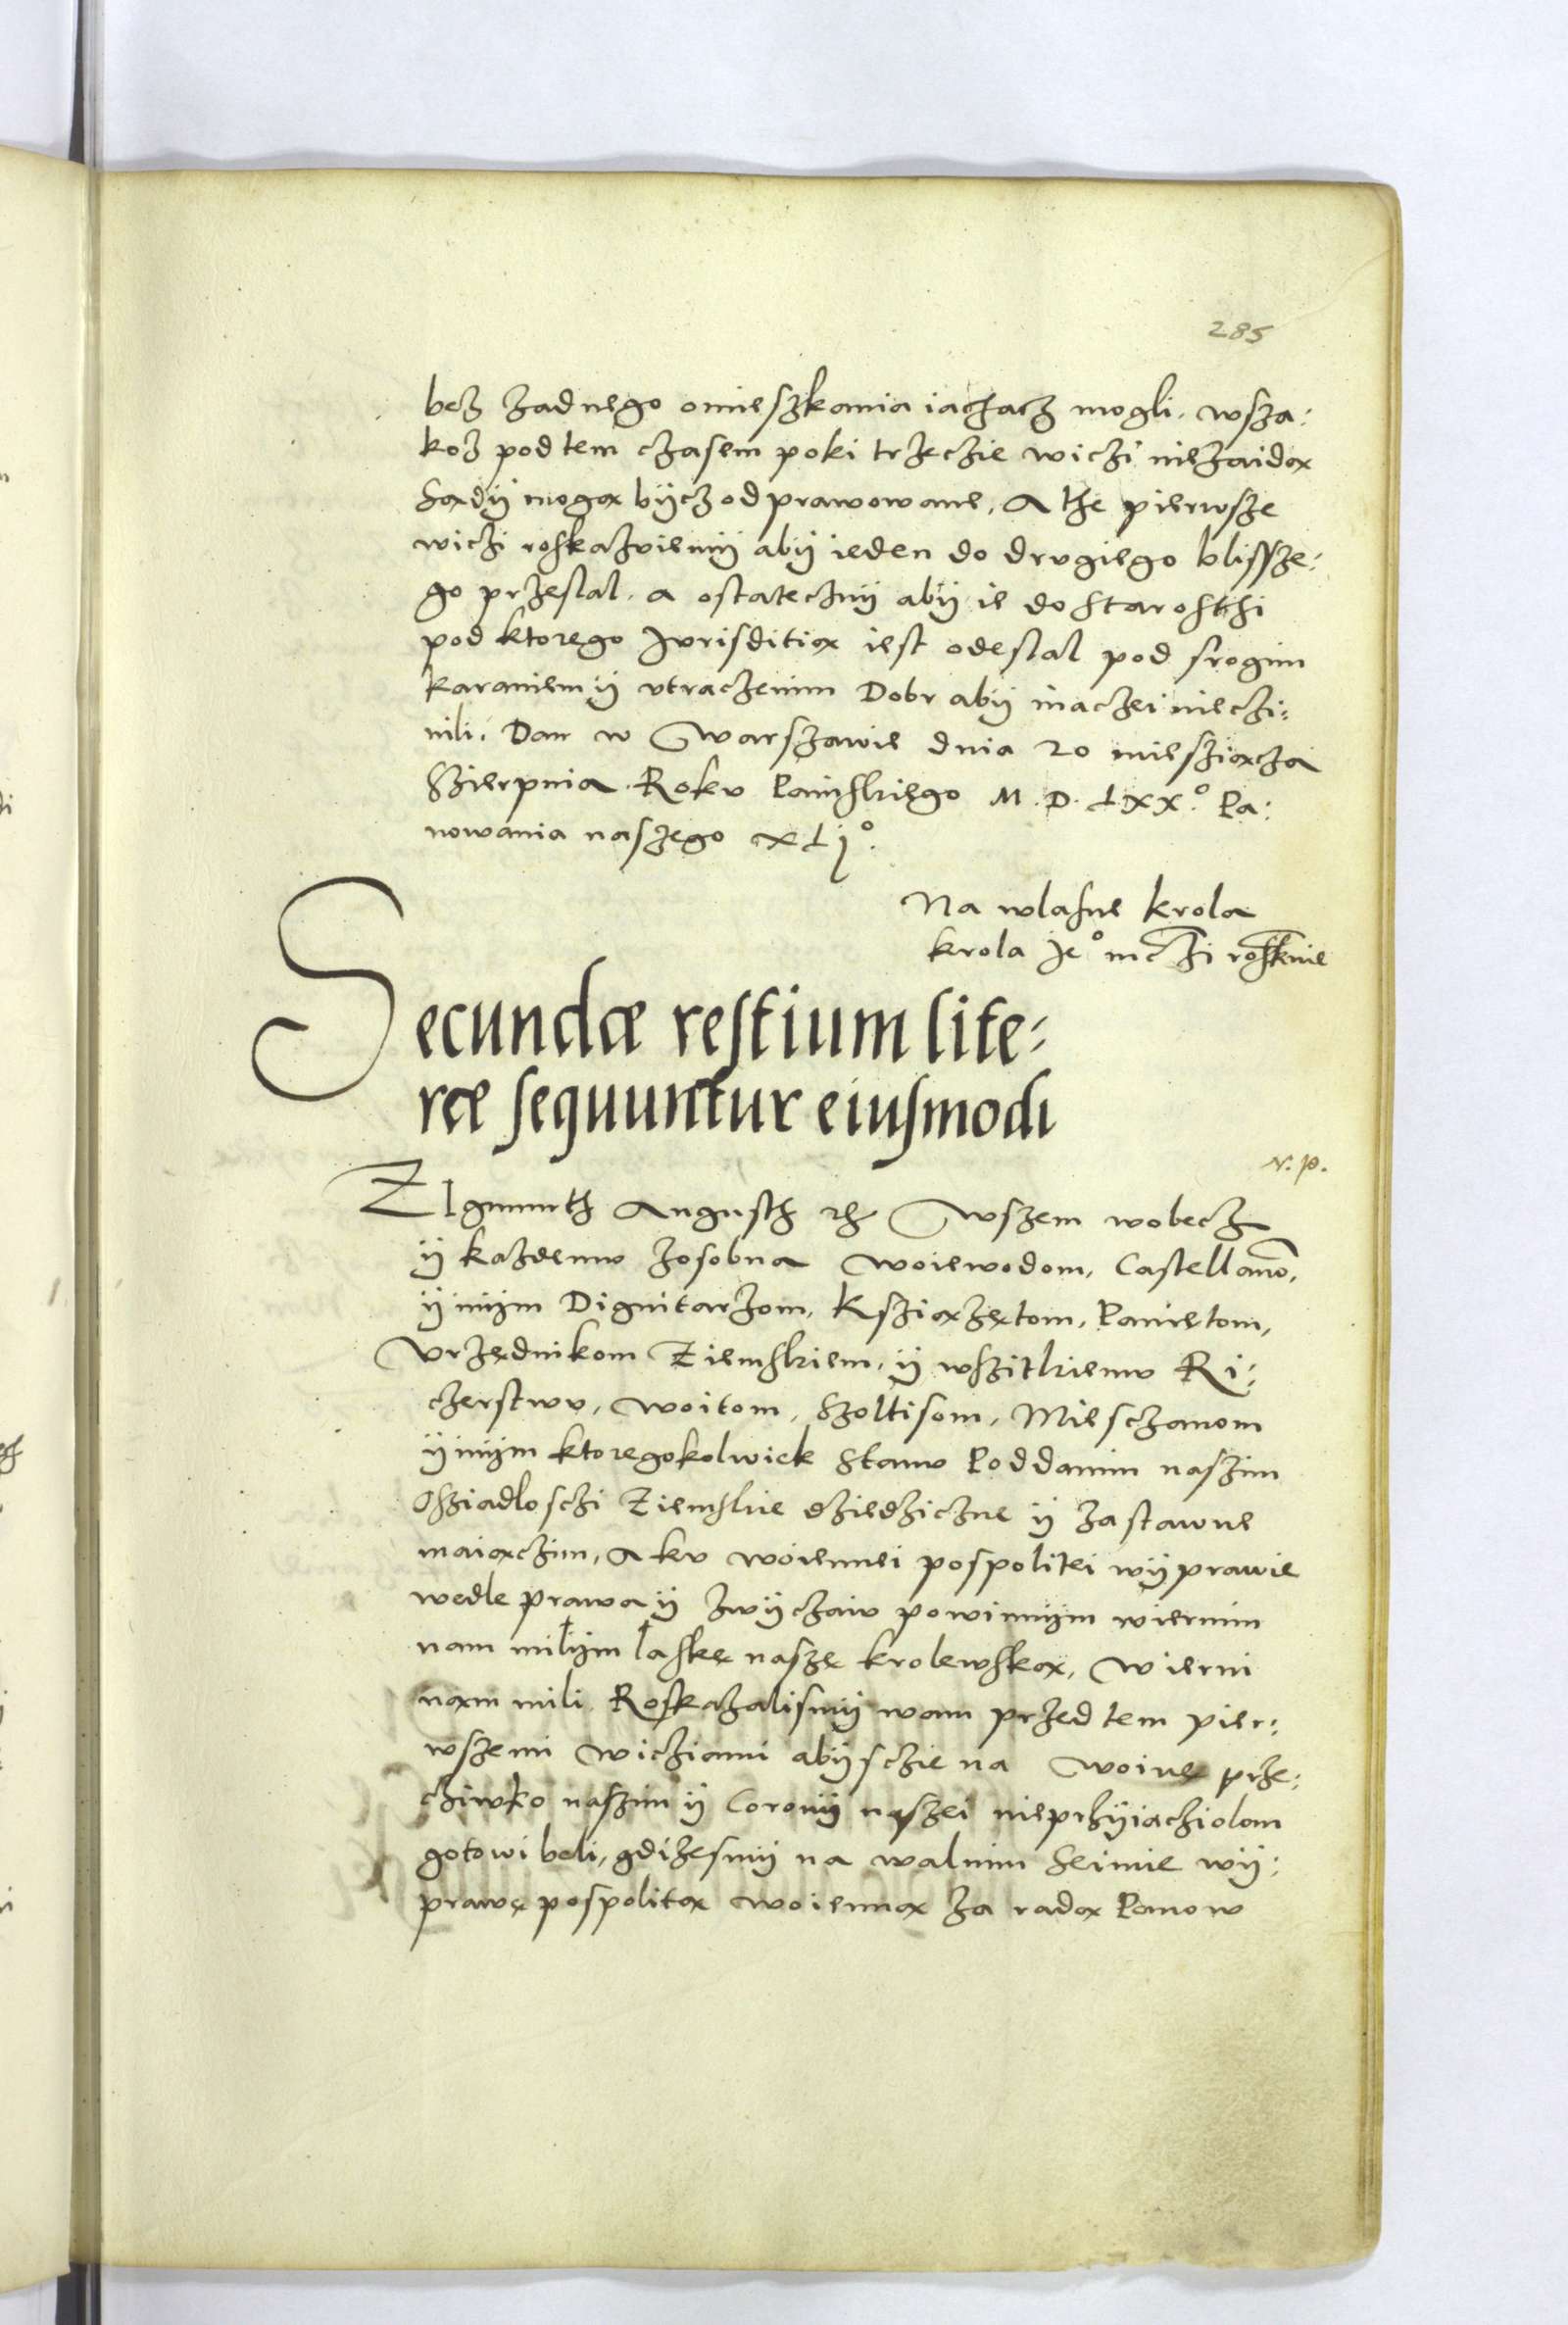 285
bez żadnego omieszkania iachacz mogli, wsza:
koz pod tem czasem poki trzeczie wiczi niezaidą
Sądÿ mogą bÿcz odprawowane, A the pierwsze
wiczi roskazviemÿ abÿ ieden do drugiego blissze:
go przeslal, a ostatecznÿ abÿ ie do Starosthi
pod ktorego Jurisditią iest odeslal pod srogim
karaniem ÿ vtraczenim Dobr abÿ inaczei nieczi:
nili. Dan w Warszawie dnia 20 miesziącza
Szierpnia Roku Painskiego M. D. LXX.° Pa:
nowania naszego XLj°.
Na wlasne krola
krola Je° mczi rosknie
Secundæ restium lite:
ræ sequuntur eiusmodi
N. P.
ZIgmunth Augusth etc Wszem wobecz
ÿ kazdemu zosobna Woiewodom, Castellano,
ÿ inÿm Dignitarzom, Ksziążętom, Panietom,
Vrzędnikom Ziemskiem, ÿ wszitkiemu Ri:
czerstwu, Woitom, Szoltisom, Miesczanom
ÿ inÿm ktoregokolwiek Stanu Poddanim naszim
Osziadlosczi Ziemskie dziedziczne ÿ zastawne
maiączim, A ku woiennei pospolitei wÿprawie
wedle prawa ÿ zwÿczaiu powinnÿm wiernim
nam miłÿm łaskę naszę krolewską, Wierni
nam mili. Roskazalismÿ wam przed tem pier:
wszemi Wicziami abÿsczie na Woinę prze:
cziwko naszim ÿ Coronÿ naszei nieprzÿiacziolom
gotowi beli, gdizesmÿ na walnim Seimie wÿ:
prawę pospolitą woienną za radą Panow